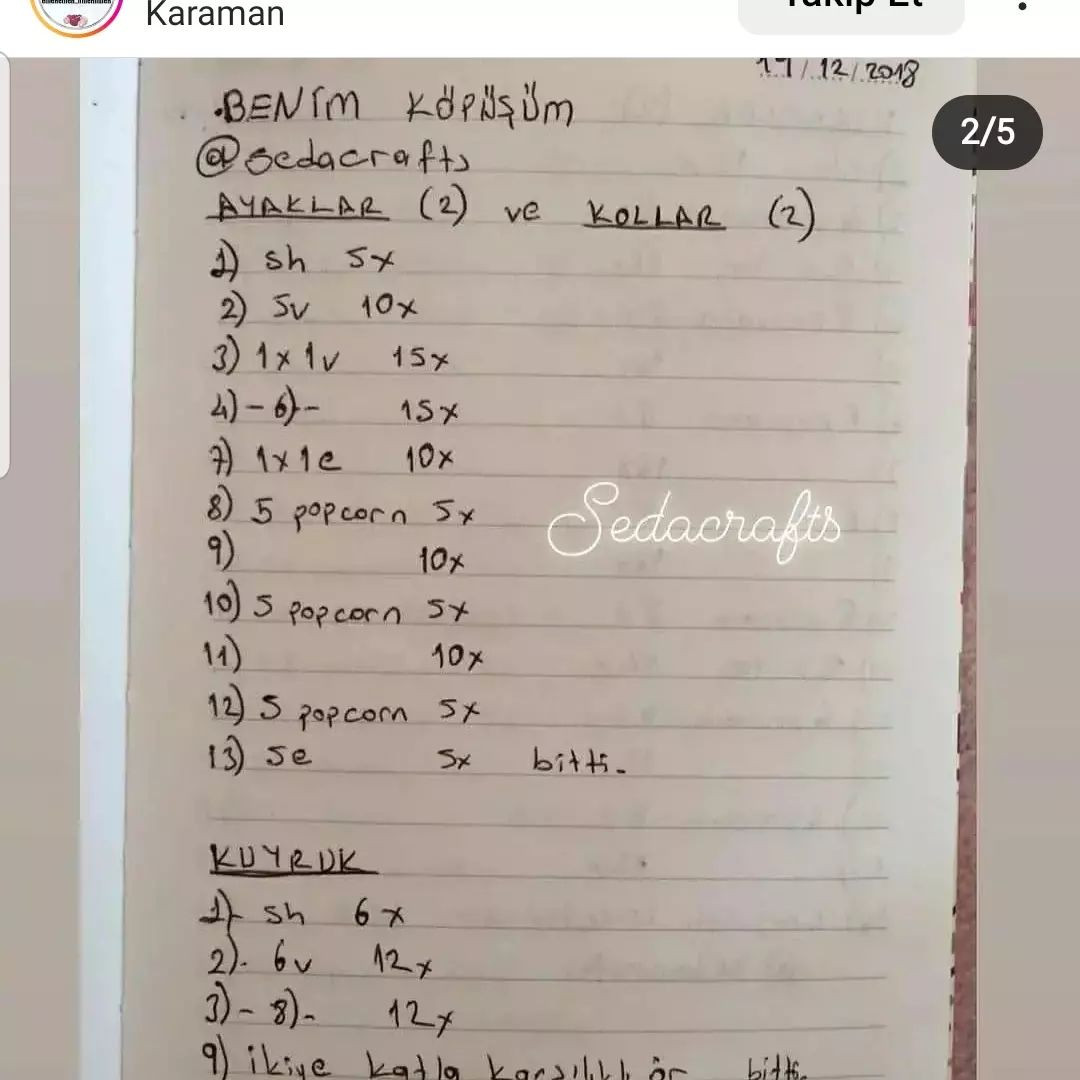 Karaman
Takip Et
17/12/2018
2/5
.BENİM KÖPÜŞÜM
@sedacrafts
AYAKLAR (2) ve KOLLAR (2)
1) sh 5x
2) 5v 10x
3) 1x1v 15x
4)-6)- 15x
7) 1x1e 10x
8) 5 popcorn 5x
Sedacrafts
9) 10x
10) 5 popcorn 5x
11) 10x
12) 5 popcorn 5x
13) 5e 5x bitti.
KUYRUK
1)- sh 6x
2)- 6v 12x
3)-8)- 12x
9) ikiye katla karşılıklı ör bitti.